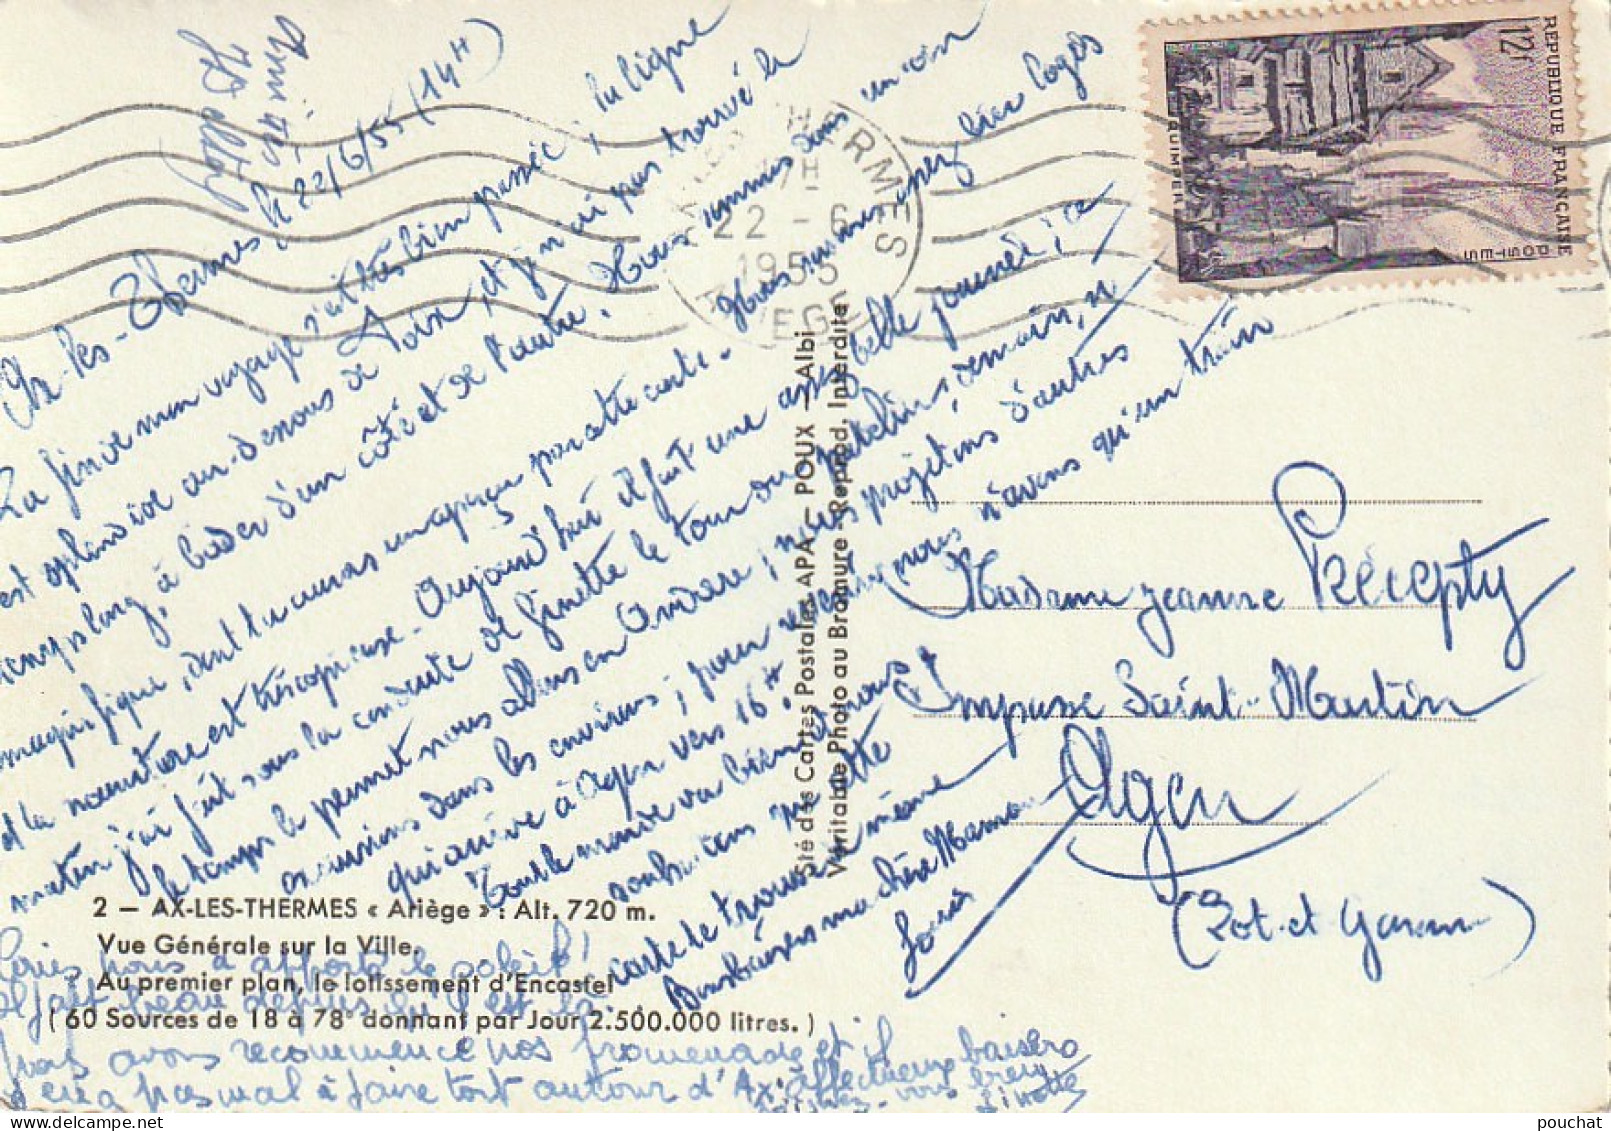 Amitiés
Ax-les-Thermes, le 22/6/55 (14 H)
La fin de mon voyage s'est très bien passée ; la ligne
est splendide au-dessous de Foix, et je n'ai pas trouvé le
temps long, à bader d'un côté et de l'autre. Nous sommes dans un coin
magnifique, dont tu auras un aperçu par cette carte. Nous sommes assez bien logés
et la nourriture est très copieuse. Aujourd'hui il fait une assez belle journée ; ce
matin j'ai fait sous la conduite de Ginette le tour du patelin ; demain, si
le temps le permet nous allons en Andorre ; nous projetons d'autres
excursions dans les environs ; pour revenir nous n'avons qu'un train
qui arrive à Agen vers 16 H
Tout le monde va bien et nous
souhaitons que cette
carte te trouve de même
Bons baisers ma chère Maman
Louis
nous a apporté le soleil !
Il fait beau depuis qu'il est là.
Nous avons recommencé nos promenades et il
y en a pas mal à faire tout autour d'Ax. Affectueux baisers
Ginette
RÉPUBLIQUE FRANÇAISE
12f
POSTES
QUIMPER
AX-LES-THERMES
22 - 6
1955
ARIEGE
Sté des Cartes Postales APA - POUX - Albi
Véritable Photo au Bromure - Reprod. Interdite
Madame Jeanne Récepty
Impasse Saint-Martin
Agen
(Lot-et-Garonne)
2 — AX-LES-THERMES « Ariège » : Alt. 720 m.
Vue Générale sur la Ville.
Au premier plan, le lotissement d'Encastel
( 60 Sources de 18 à 78° donnant par Jour 2.500.000 litres. )
pouchat